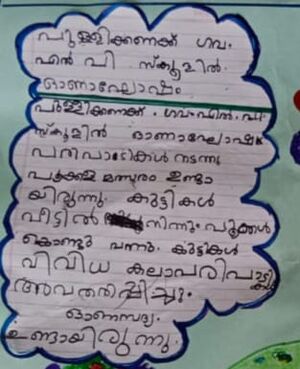 പുള്ളിക്കണക്ക് ഗവ.
എൻ പി സ്കൂളിൽ.
ഓണാഘോഷം
പുള്ളിക്കണക്ക്. ഗവ.എൽ.പി.
സ്കൂളിൽ ഓണാഘോഷ
പരിപാടികൾ നടന്നു
പൂക്കള മത്സരം ഉണ്ടാ
യിരുന്നു. കുട്ടികൾ
വീട്ടിൽ നിന്നും പൂക്കൾ
കൊണ്ടു വന്നു. കുട്ടികൾ
വിവിധ കലാപരിപാടികൾ
അവതരിപ്പിച്ചു.
ഓണസദ്യ.
ഉണ്ടായിരുന്നു.